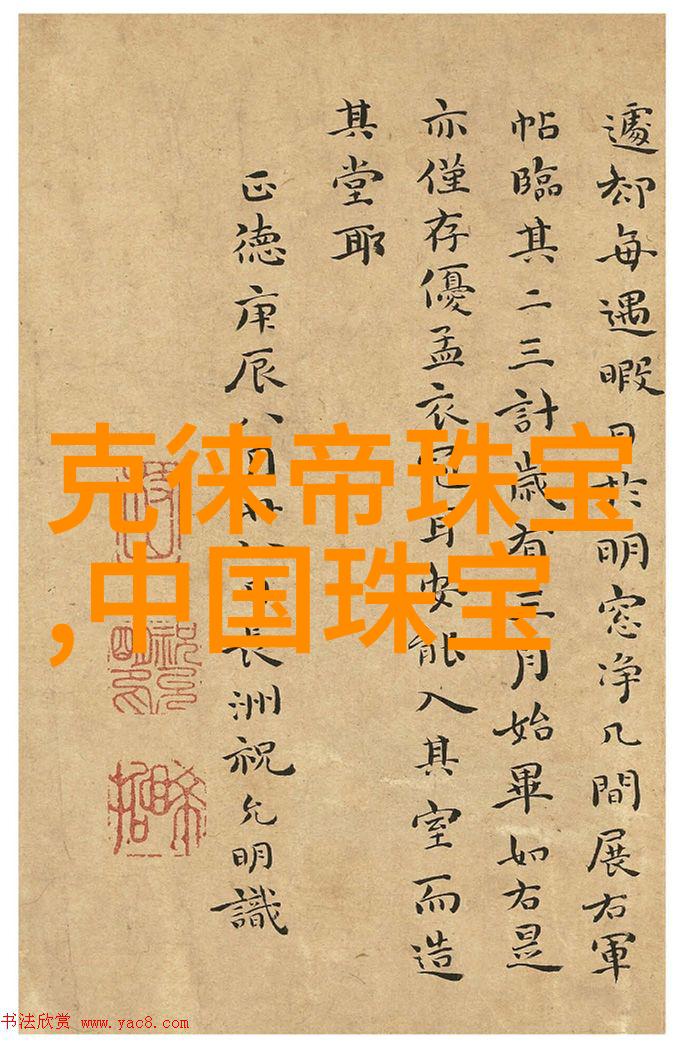 遽却每遇暇日於明窓净几間展右軍
帖臨其二三計歲有三月始畢如右是
亦僅存優孟衣冠耳安能入其室而造
其堂耶
正德庚辰八月廿 長洲祝允明識
克徕帝珠宝
,中国珠宝
祝允明
希哲
书法欣赏 www.yac8.com